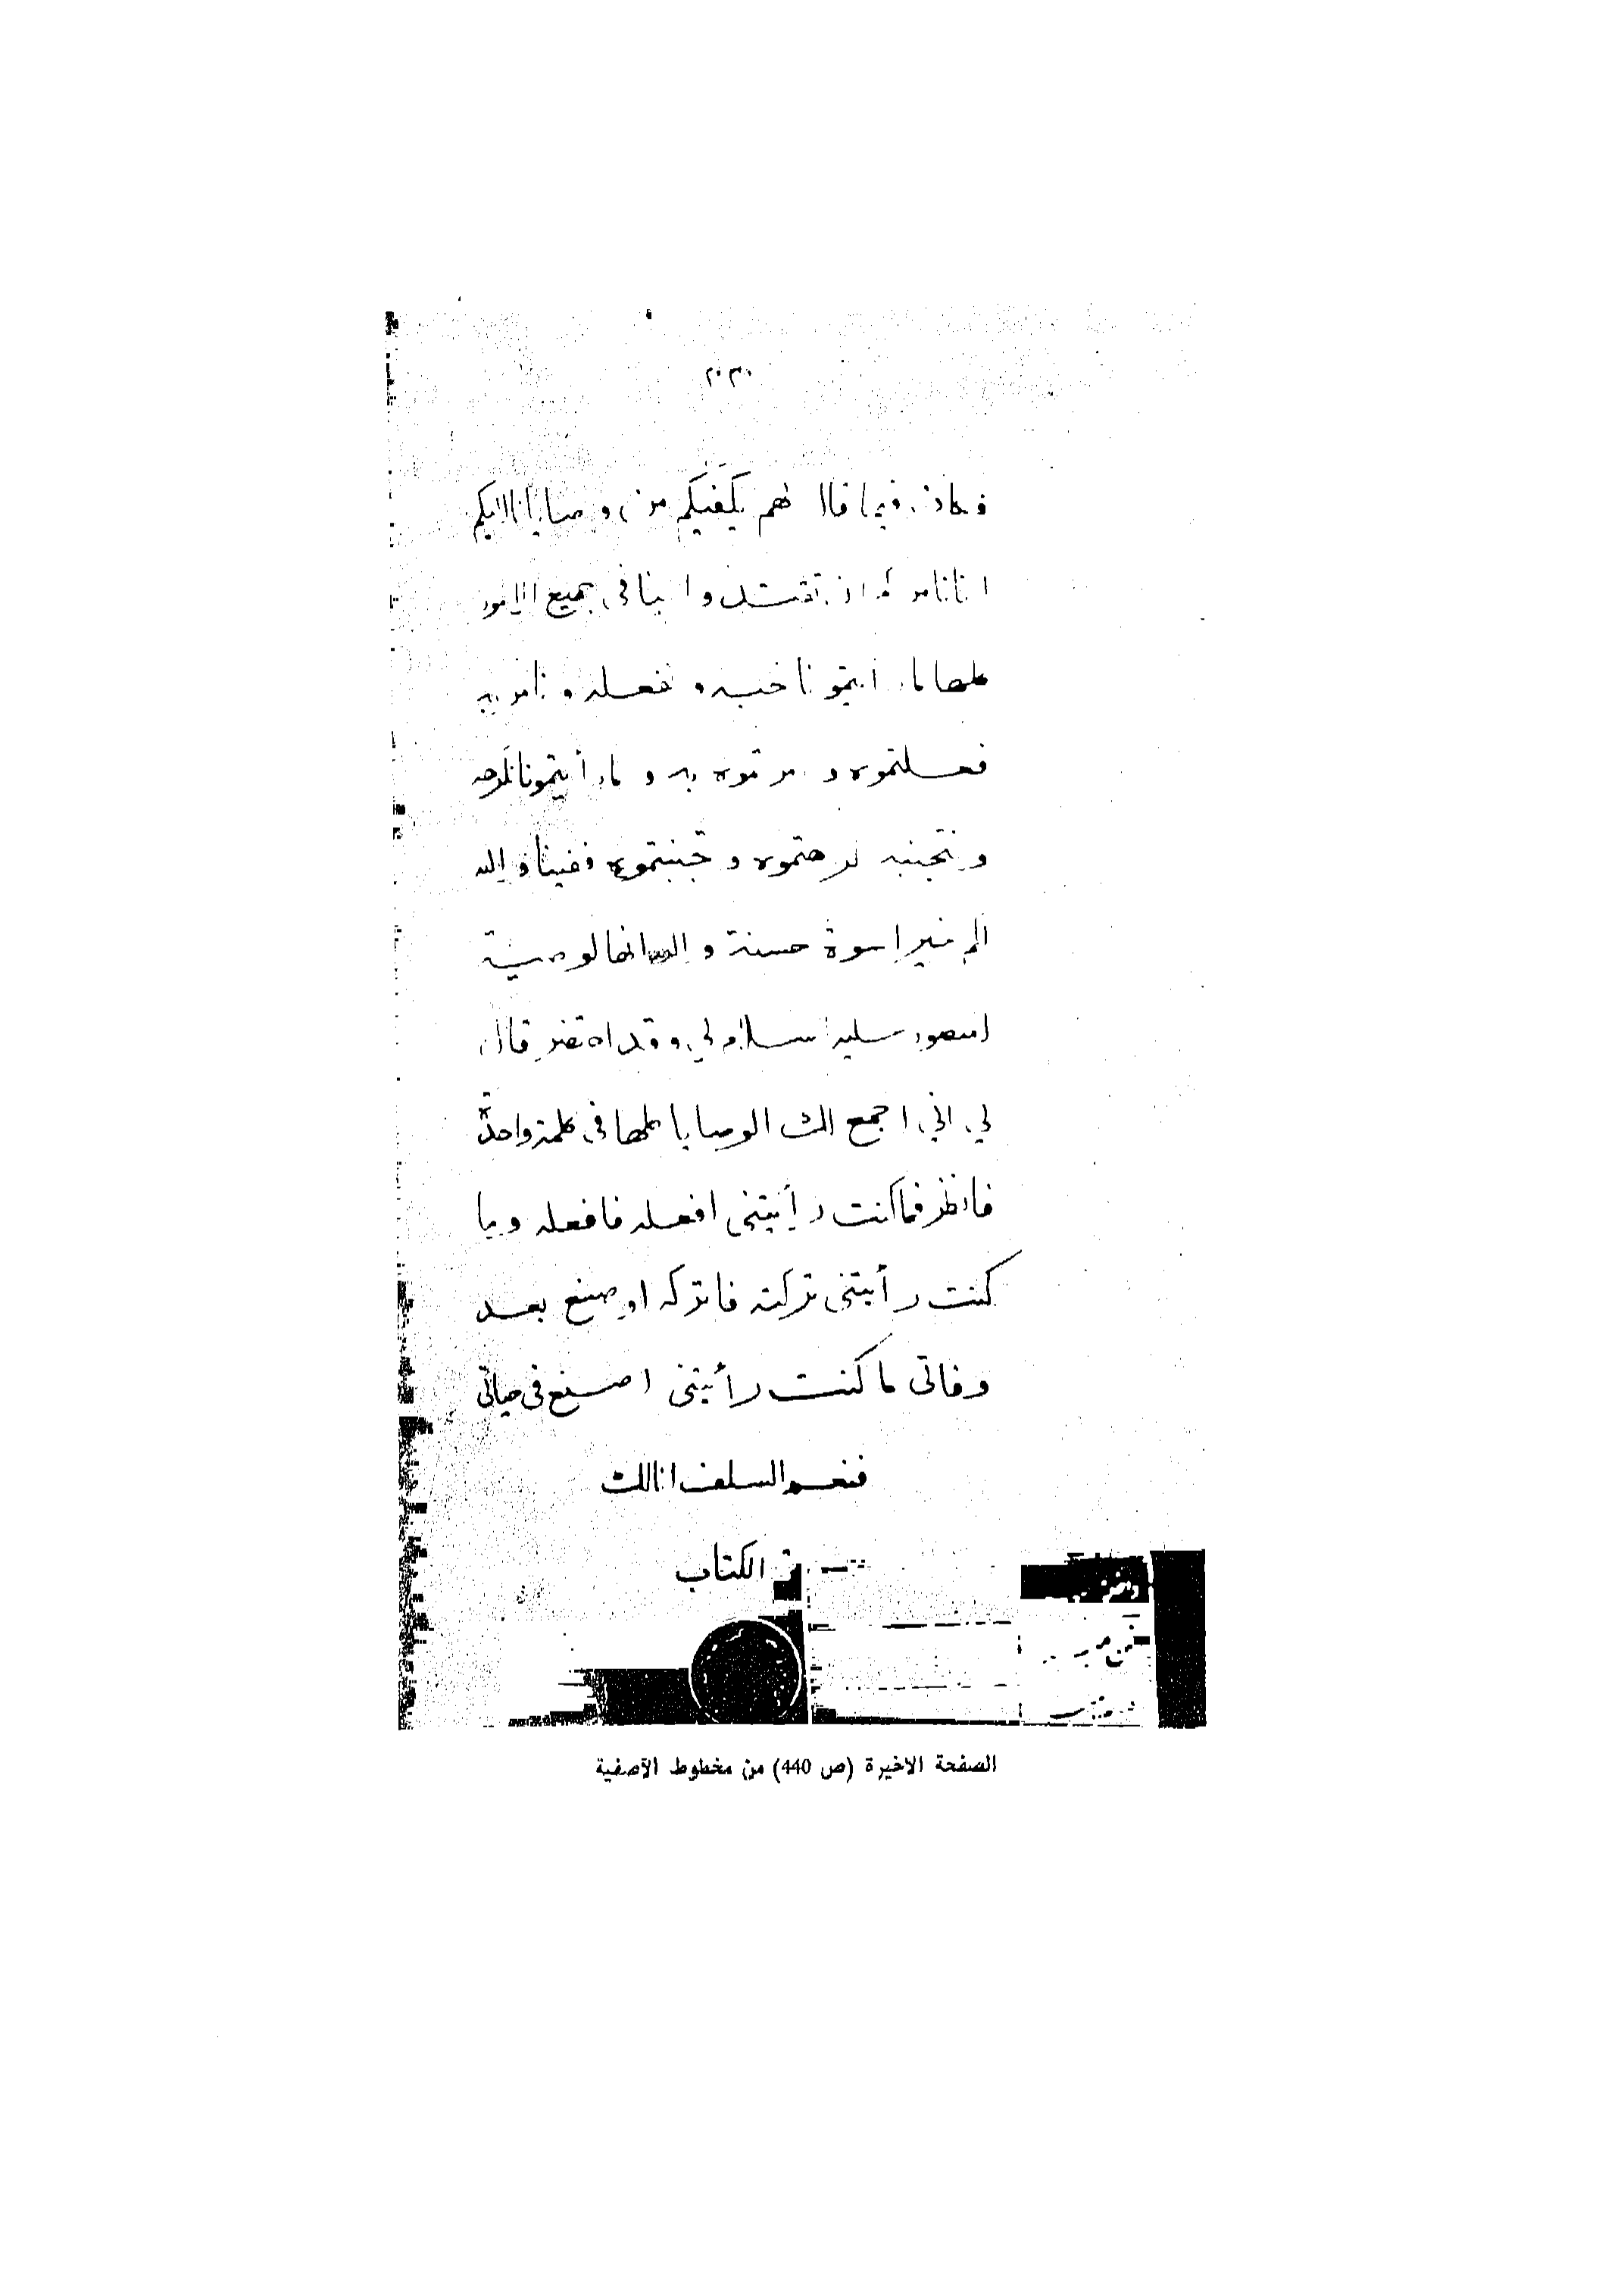 فكان فيما قال لهم يكفيكم من وصايانا اليكم
انا نامركم ان تقتدوا بنا في جميع الامور
كلها ما رأيتمونا نحبه و نفعله و نامر به
فعلتموه و امرتموه به و ما رأيتمونا نكرهه
و نتجنبه كرهتموه و تجنبتموه ففينا و الله
اسوة حسنة و الله انها لوصية
المنصور عليه السلام لي و قد قال
لي اني اجمع لك الوصايا كلها في كلمة واحدة
فانظر فما كنت رأيتني افعله فافعله و ما
كنت رأيتني تركته فاتركه او صنع بعد
وفاتي ما كنت رأيتني اصنع في حياتي
فنعم السلف انا لك
الكتاب
الصفحة الاخيرة (ص 440) من مخطوط الآصفية